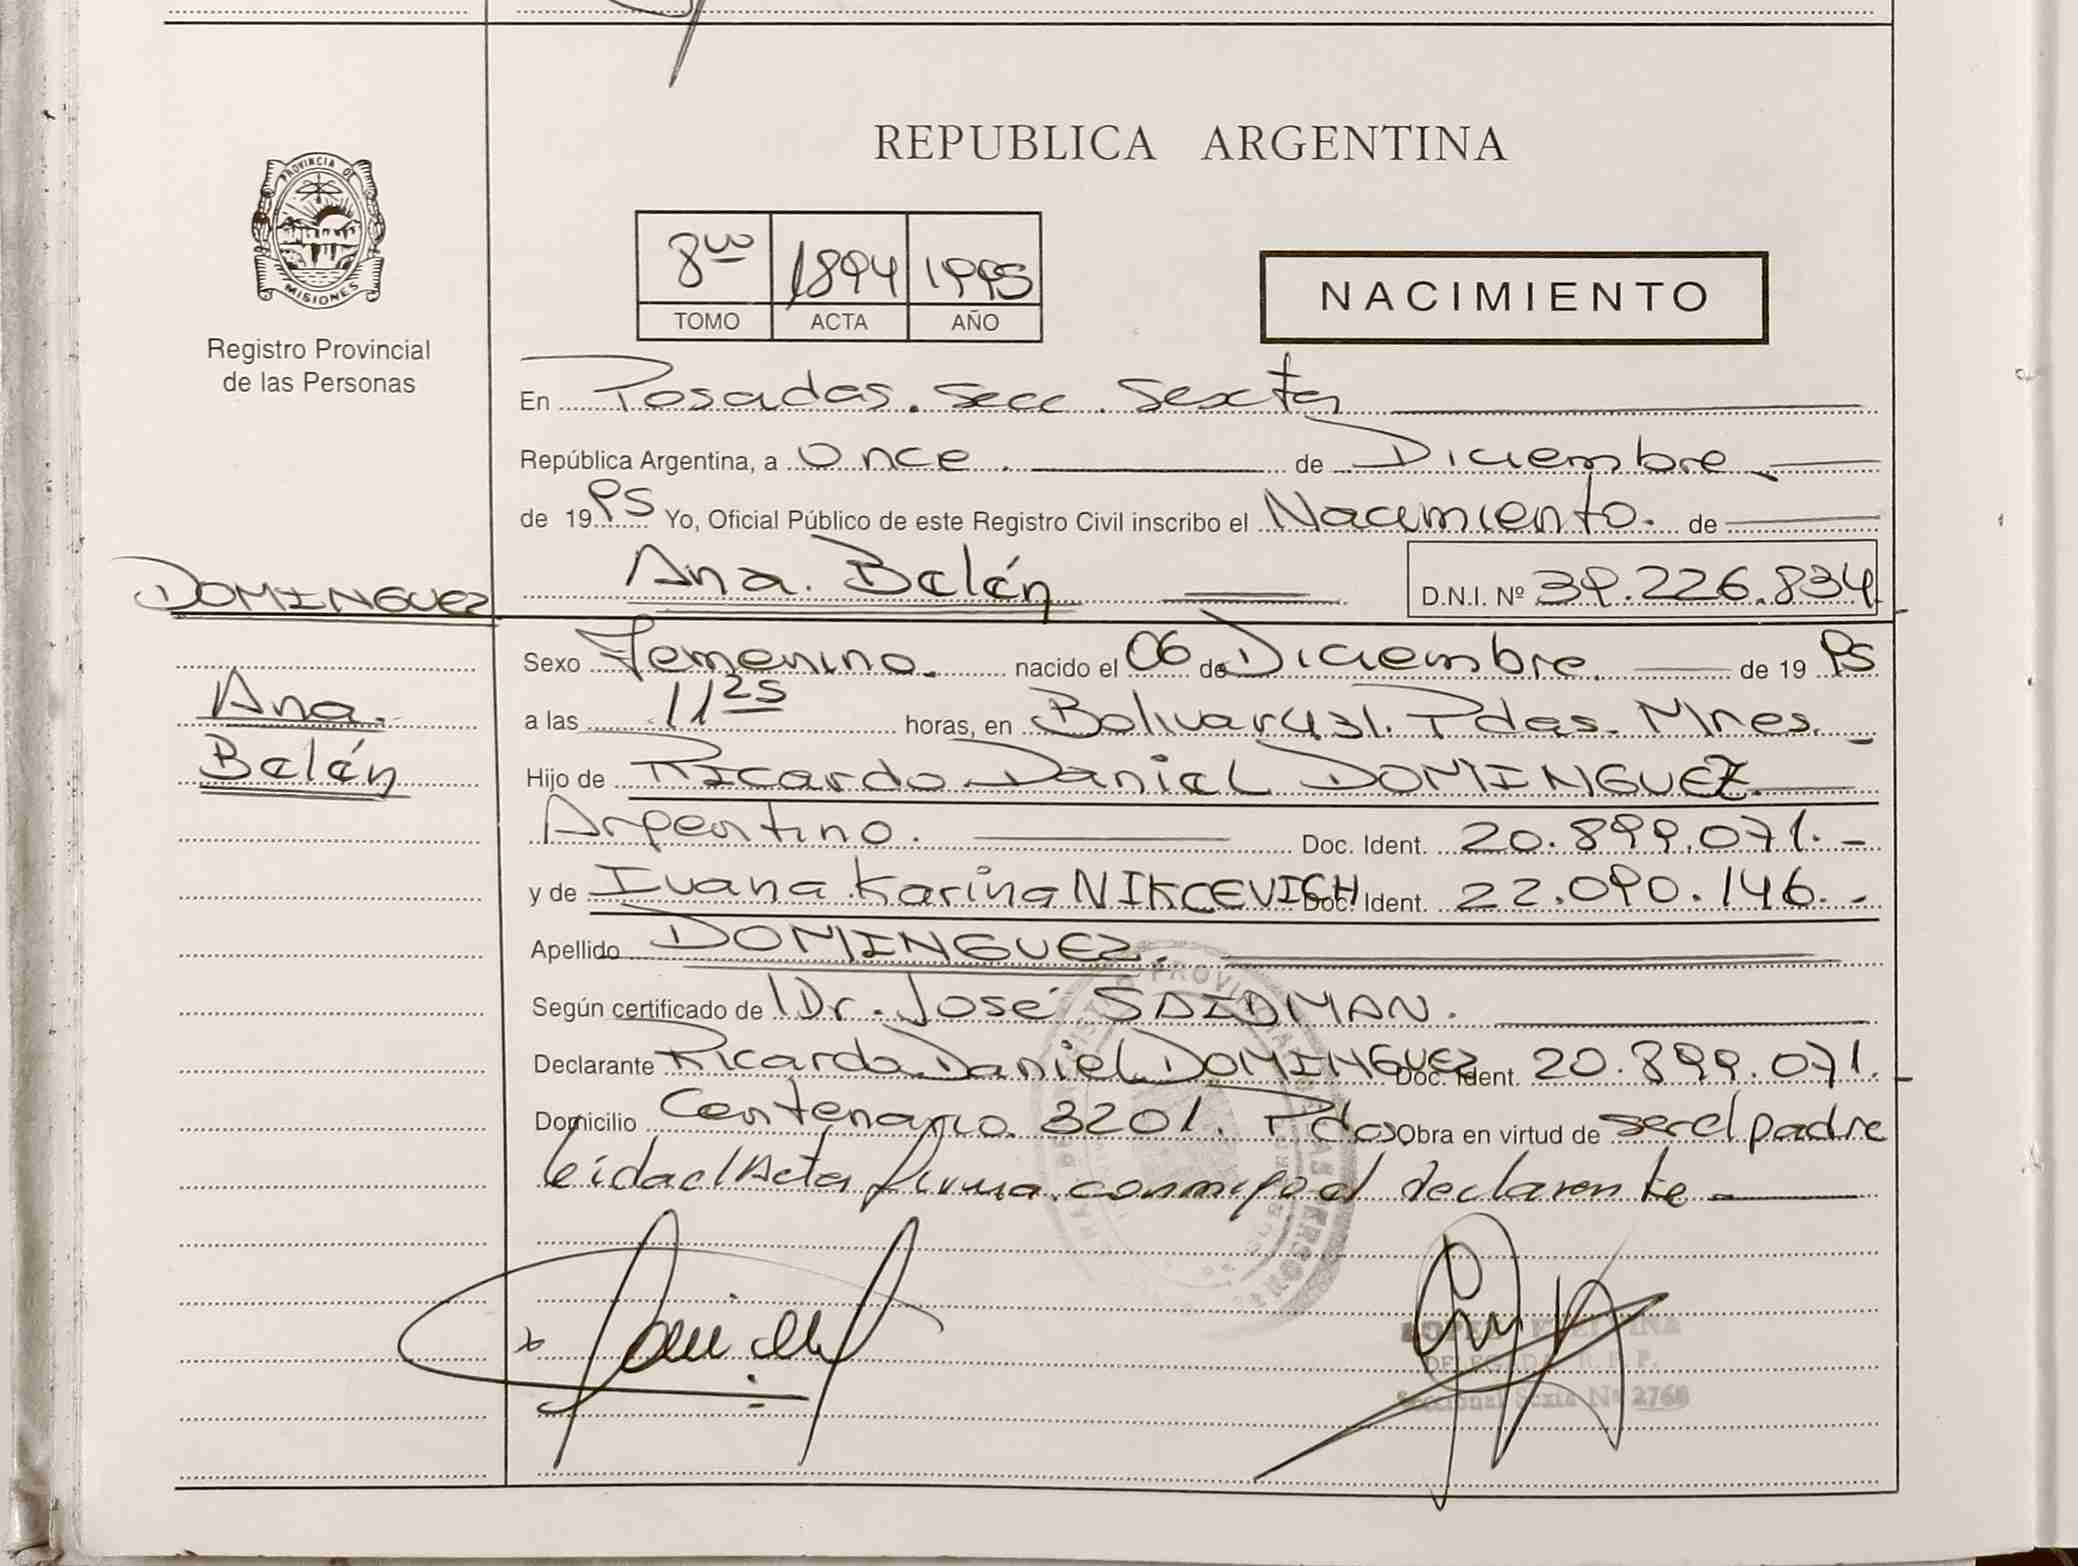 REPUBLICA ARGENTINA
PROVINCIA DE
MISIONES
Registro Provincial
de las Personas
8vo 1894 1995
TOMO ACTA AÑO
NACIMIENTO
En Posadas. Secc. Sexta
República Argentina, a Once. de Diciembre
de 1995 Yo, Oficial Público de este Registro Civil inscribo el Nacimiento. de
Ana. Belén D.N.I. Nº 39.226.834
DOMINGUEZ
Ana.
Belén
Sexo Femenino. nacido el 06 de Diciembre. de 1995
a las 11 25 horas, en Bolivar 431. Pdas. Mnes.
Hijo de Ricardo Daniel DOMINGUEZ
Argentino. Doc. Ident. 20.899.071.-
y de Ivana Karina NIKCEVICH Doc. Ident. 22.090.146.-
Apellido DOMINGUEZ.
Según certificado de Dr. José SAIDMAN.
Declarante Ricardo Daniel DOMINGUEZ Doc. Ident. 20.899.071.-
Domicilio Centenario 3201. Pdas Obra en virtud de ser el padre
leida el Acta firma conmigo el declarante
Daniel
DELEGADA R. P. P.
Seccional Sexta Nº 2768